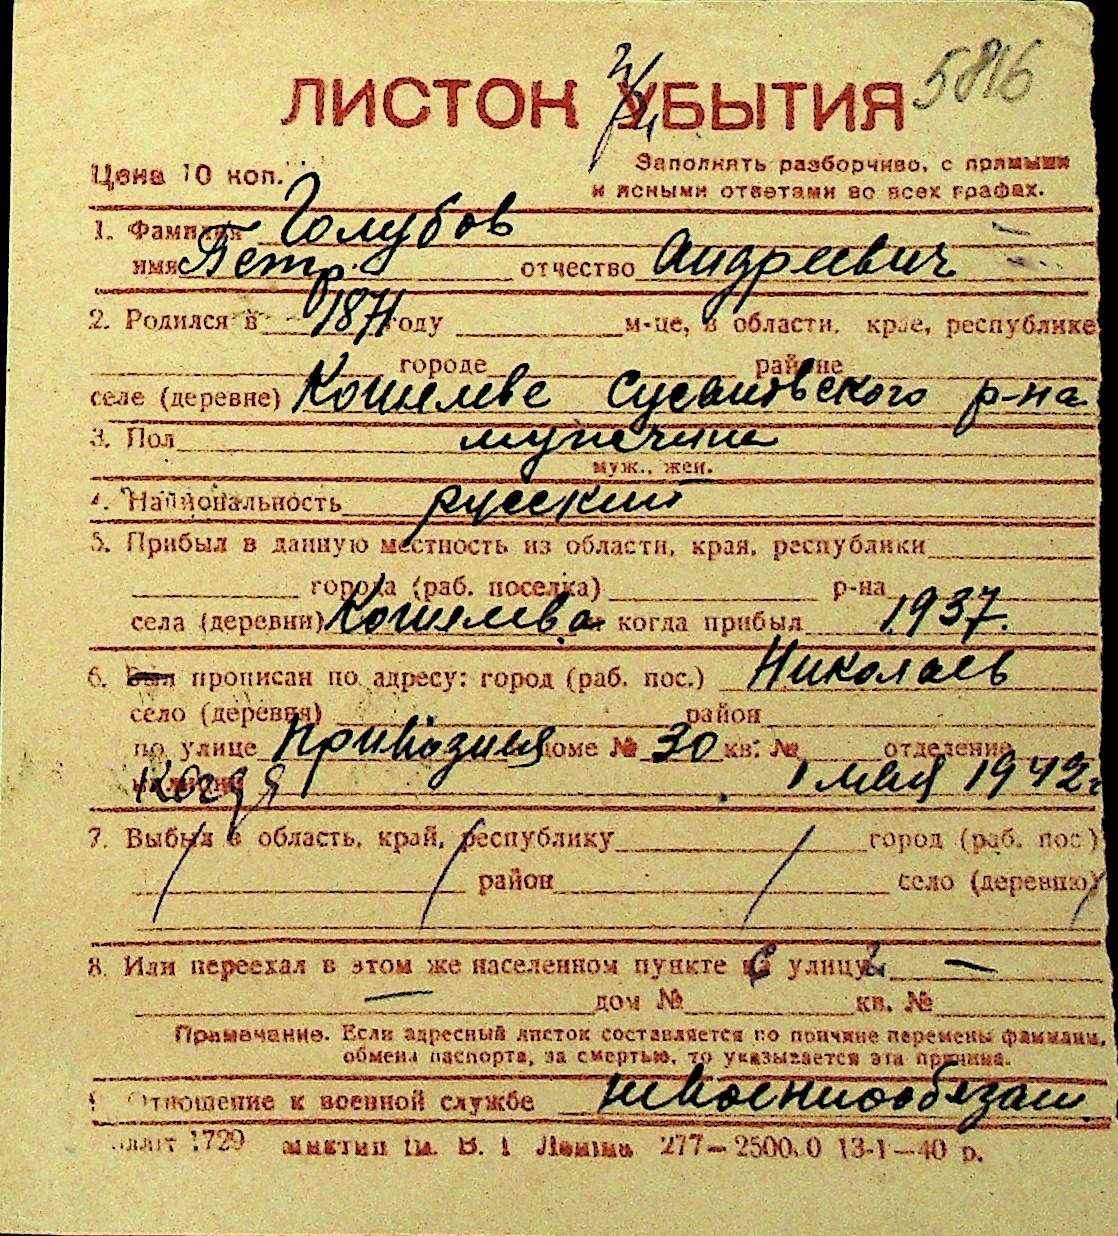 ЛИСТОК УБЫТИЯ 5816
Цена 10 коп.
Заполнять разборчиво, с прямыми
и ясными ответами во всех графах.
1. Фамилия Голубов
имя Петр отчество Андреевич
2. Родился в 1871 году м-це, в области, крае, республике
городе районе
селе (деревне) Кошелеве Сусановского р-на
3. Пол мужчина
муж., жен.
4. Национальность русский
5. Прибыл в данную местность из области, края, республики
города (раб. поселка) р-на
села (деревни) Кошелева когда прибыл 1937.
6. Был прописан по адресу: город (раб. пос.) Николаев
село (деревня) район
по улице Привозная доме № 30 кв. № отделение
когда 1 мая 1942 г
7. Выбыл в область, край, республику город (раб. пос.)
район село (деревню)
8. Или переехал в этом же населенном пункте на улицу —
— дом № кв. №
Примечание. Если адресный листок составляется по причине перемены фамилии,
обмена паспорта, за смертью, то указывается эта причина.
9. Отношение к военной службе невоеннообязан.
1729 им. В. І Леніна 277—2500.0 13-1—40 р.